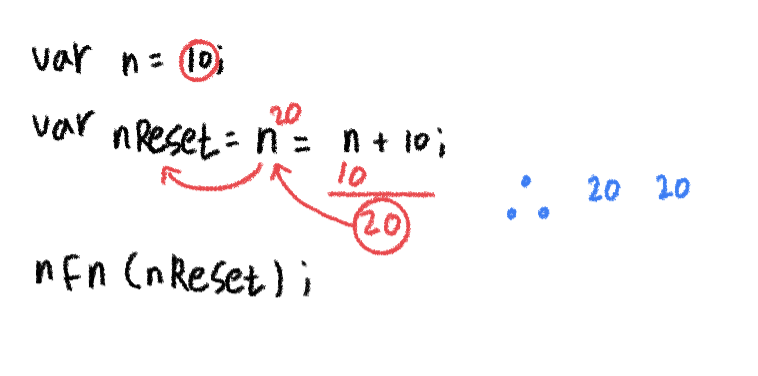 var n = 10;
20
var nReset = n = n + 10;
10
20
∴ 20 20
nFn (nReset);